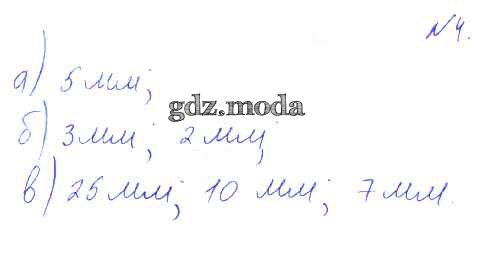 №4.
а) 5 мм;
gdz.moda
б) 3 мм; 2 мм;
в) 25 мм; 10 мм; 7 мм.